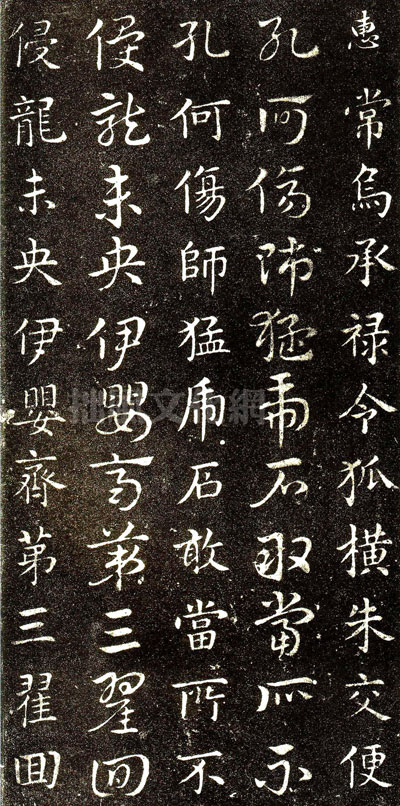 惠常烏承禄令狐橫朱交便
孔何傷師猛虎石敢當所不
孔何傷師猛虎石敢當所不
侵龍未央伊嬰齊苐三翟回
侵龍未央伊嬰齊苐三翟囬